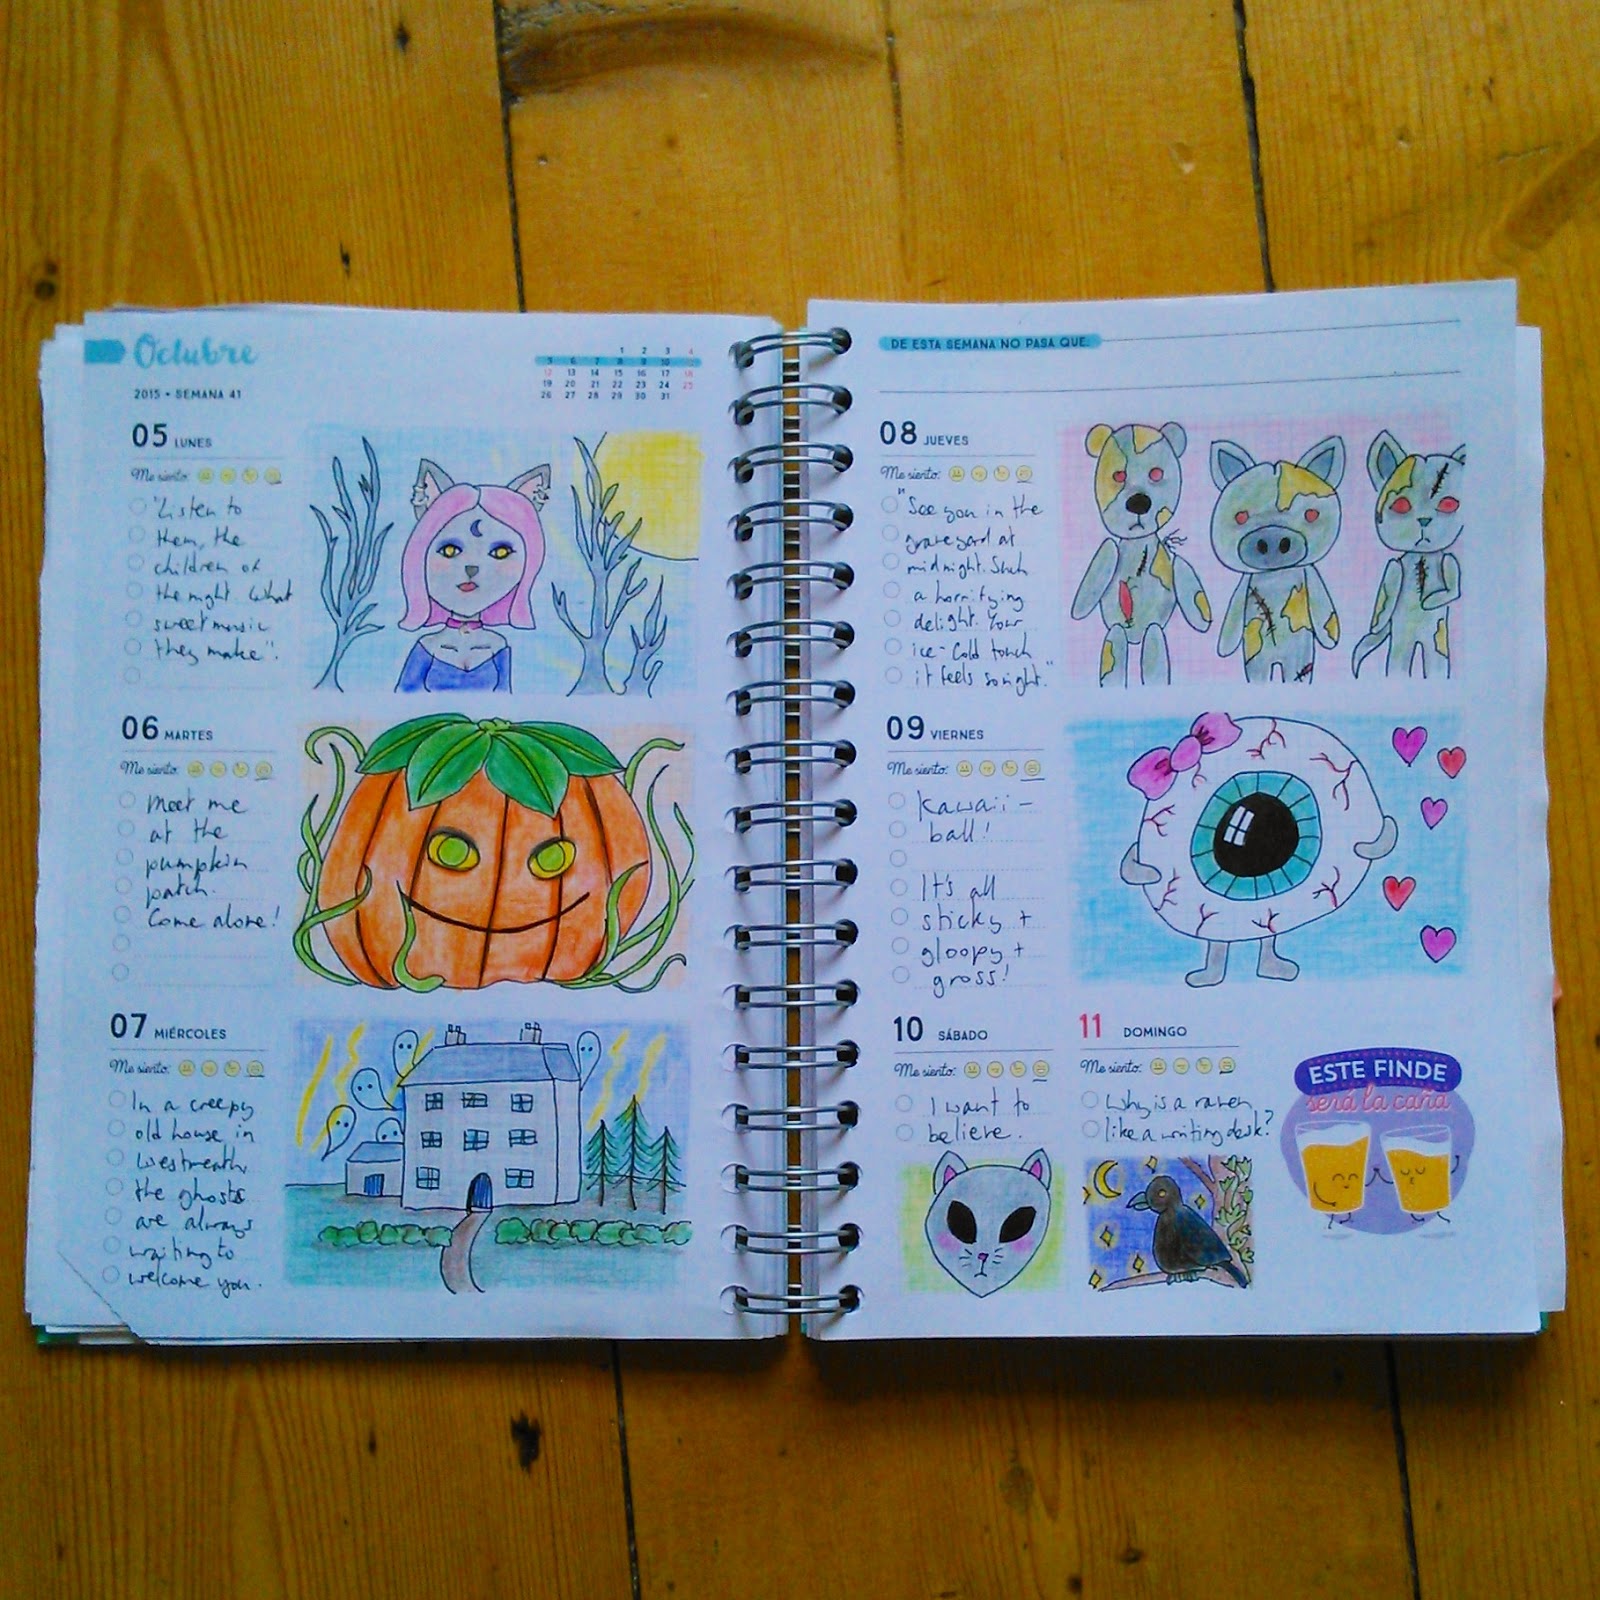 Octubre
2015 • SEMANA 41
1 2 3 4
5 6 7 8 9 10 11
12 13 14 15 16 17 18
19 20 21 22 23 24 25
26 27 28 29 30 31
05 LUNES
Me siento:
"Listen to
them, the
children of
the night. What
sweet music
they make".
06 MARTES
Me siento:
Meet me
at the
pumpkin
patch.
Come alone!
07 MIÉRCOLES
Me siento:
In a creepy
old house in
Westmeath,
the ghosts
are always
waiting to
welcome you.
DE ESTA SEMANA NO PASA QUE:
08 JUEVES
Me siento:
"See you in the
graveyard at
midnight. Such
a horrifying
delight. Your
ice-cold touch
it feels so right."
09 VIERNES
Me siento:
Kawaii-
ball!
It's all
sticky +
gloopy +
gross!
10 SÁBADO
Me siento:
I want to
believe.
11 DOMINGO
Me siento:
Why is a raven
like a writing desk?
ESTE FINDE
será la caña